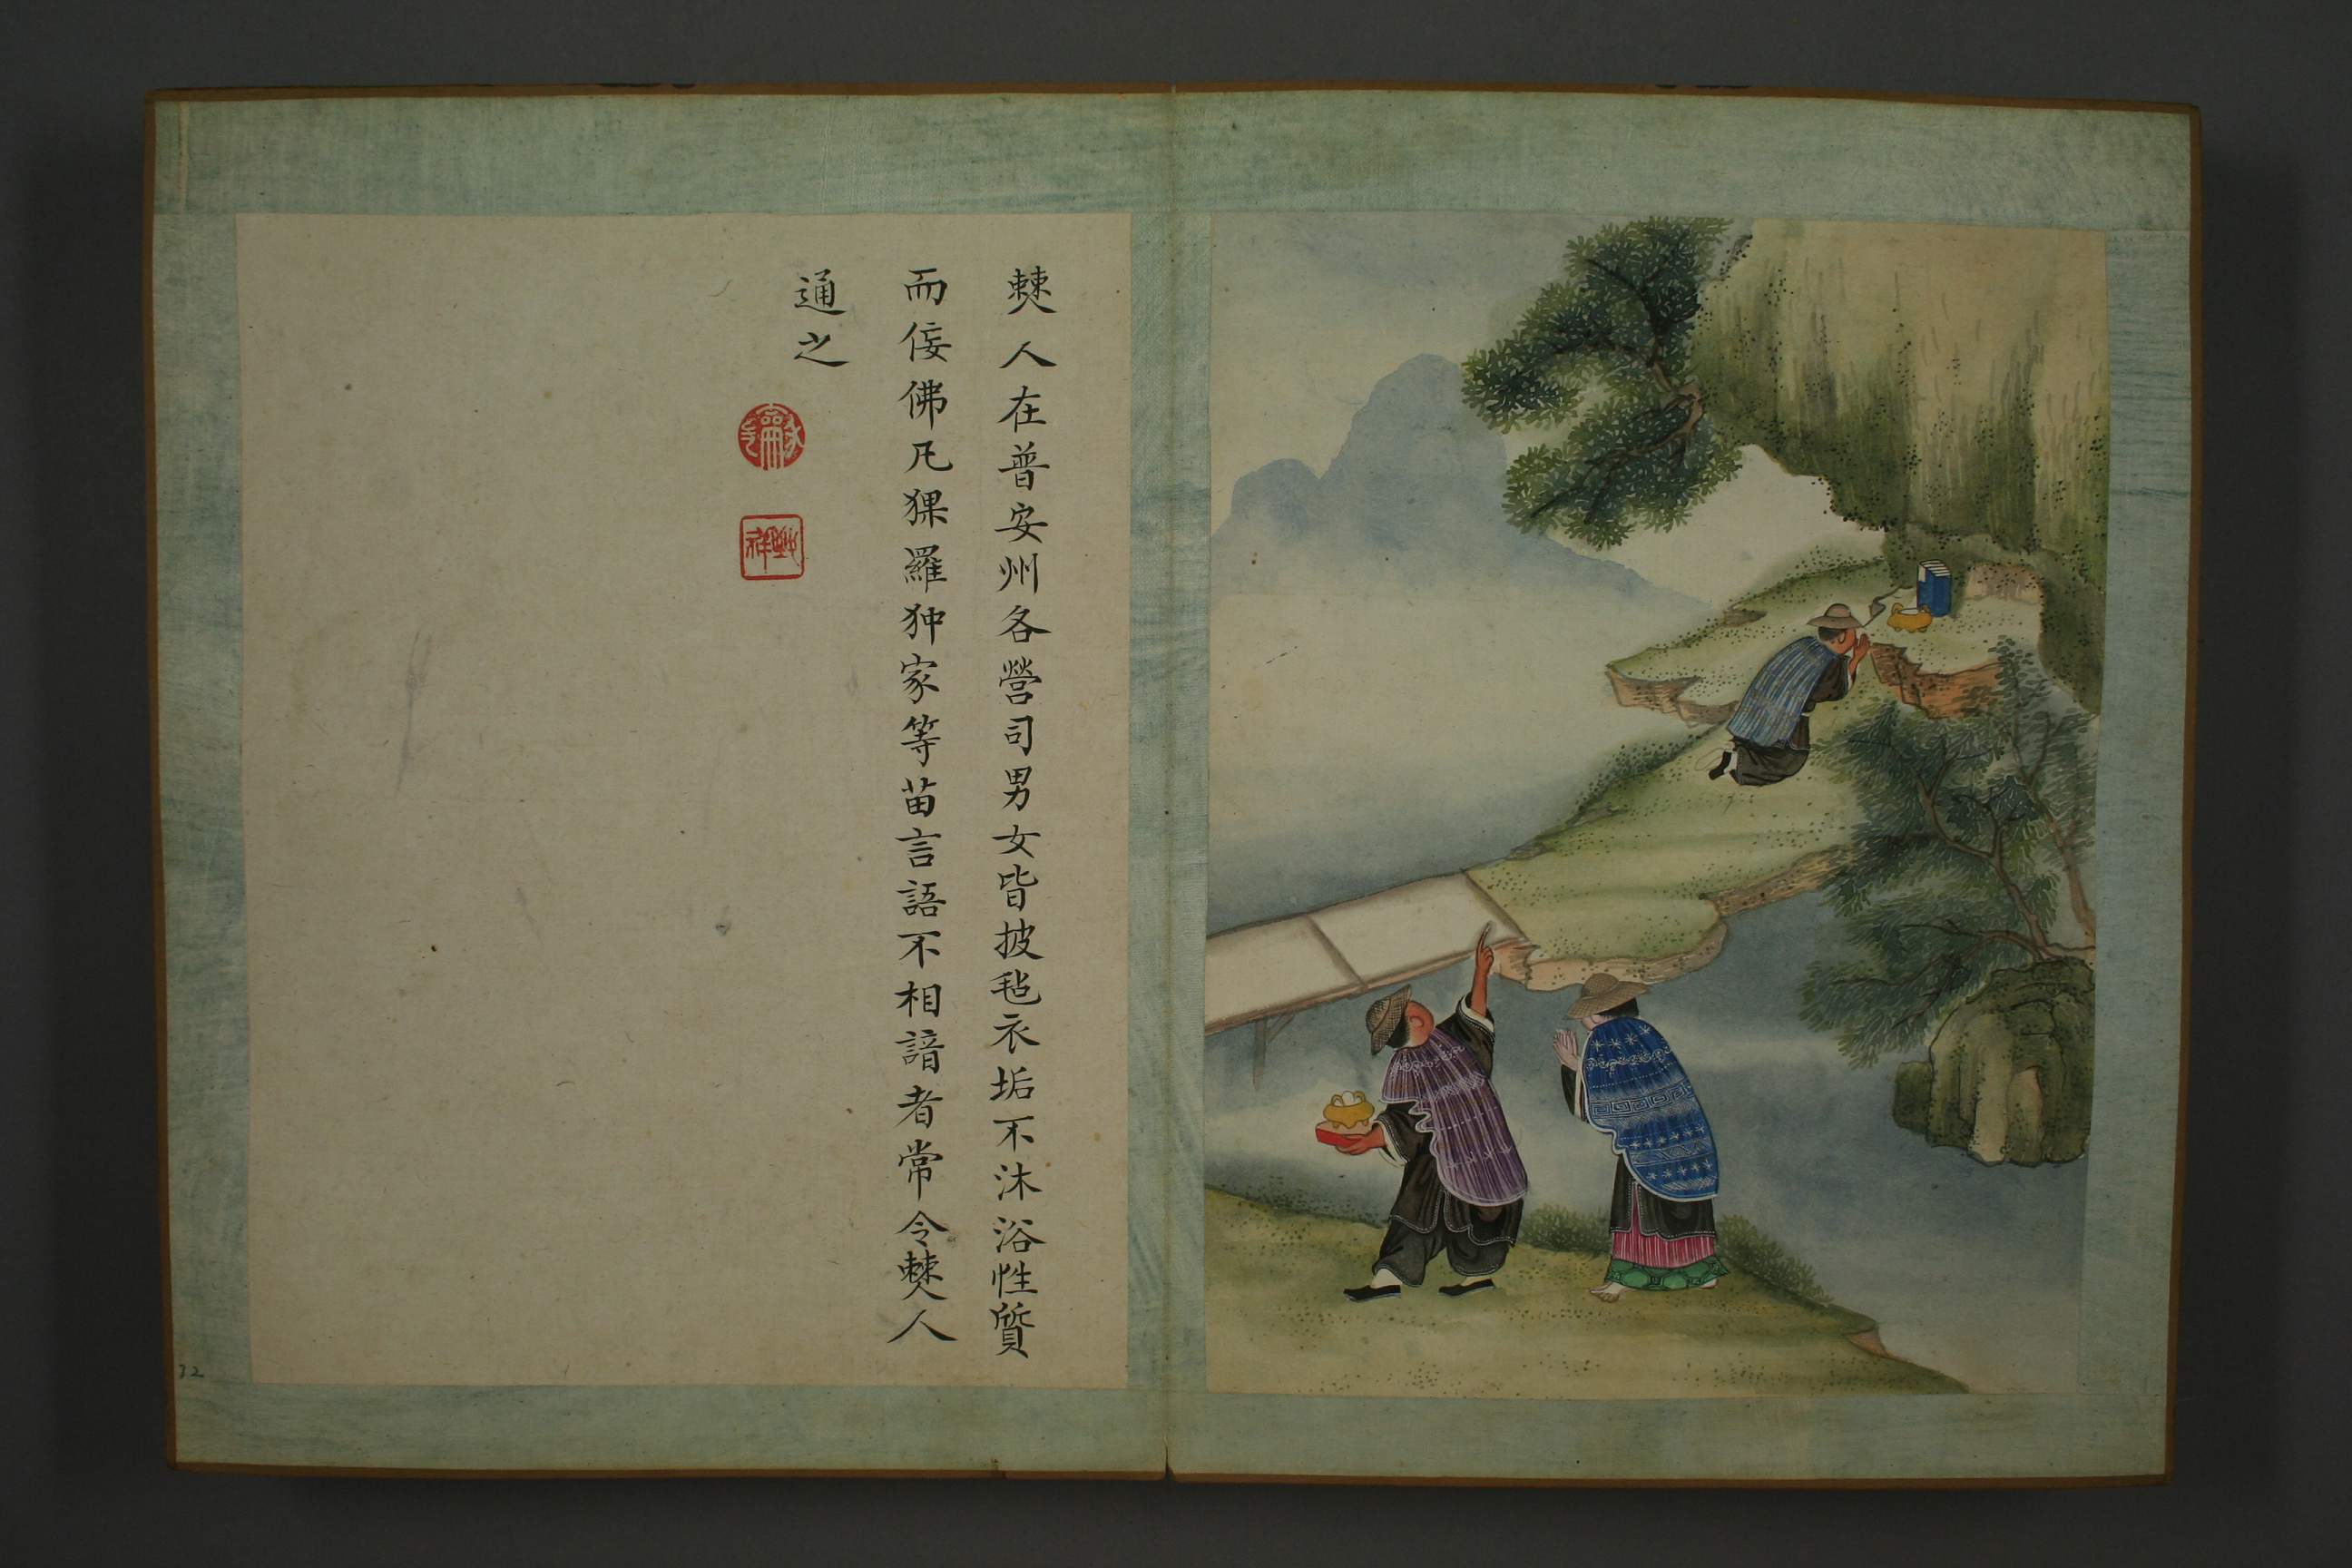 僰人在普安州各營司男女皆披毡衣垢不沐浴性質
而佞佛凡猓羅狆家等苗言語不相諳者常令僰人
通之
32